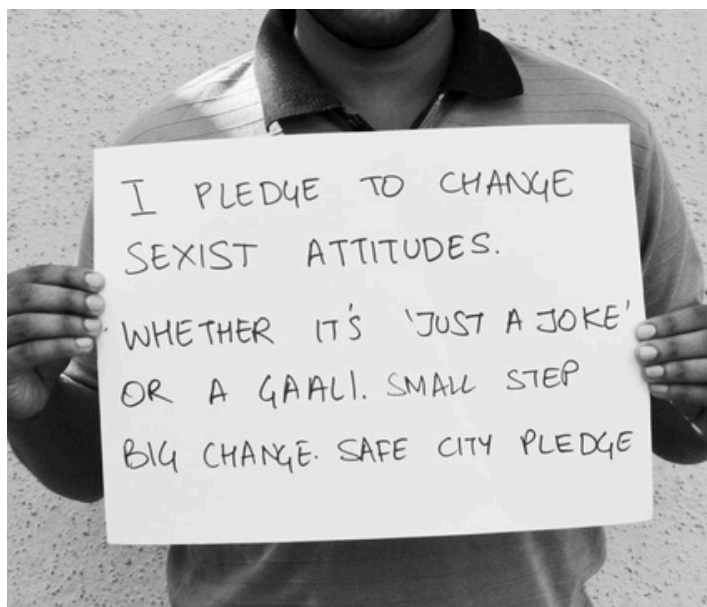 I PLEDGE TO CHANGE
SEXIST ATTITUDES.
WHETHER IT'S 'JUST A JOKE'
OR A GAALI. SMALL STEP
BIG CHANGE. SAFE CITY PLEDGE